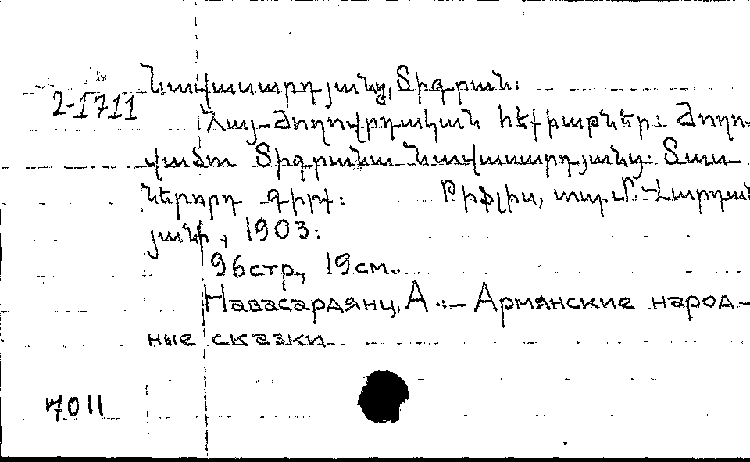 Նավասարդյանց, Տիգրան:
2-1711
Հայ-Ժողովրդական հեքիաթներ: Ժողո-
վածու Տիգրանա Նավասարդյանց. Տաս
ներորդ գիրք: Թիֆլիս, տպ. Մ. Վարդան
յանի, 1903:
96стр., 19см.
Навасардянц, А.— Армянские народ-
ные сказки
7011